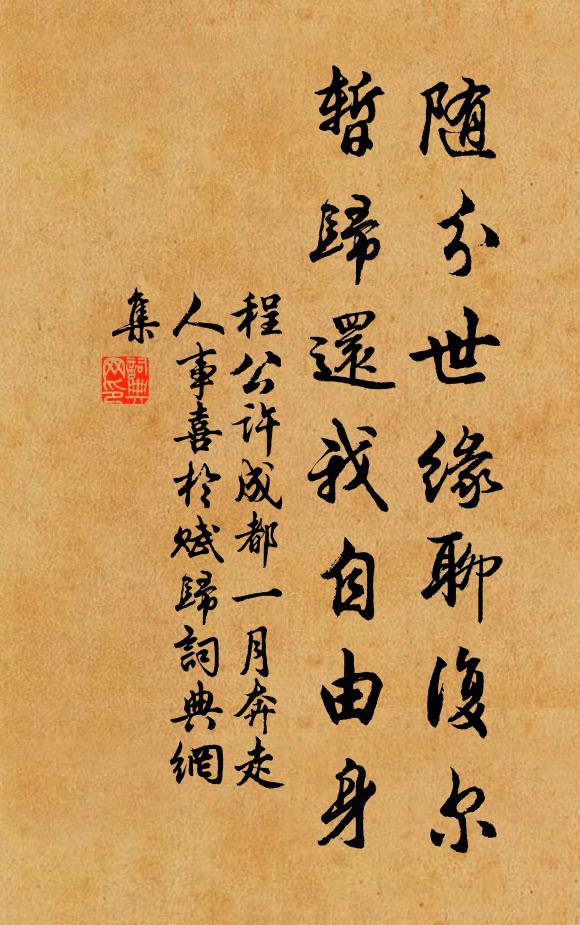 随分世緣聊復尔
暫歸還我自由身
程公许成都一月奔走
人事喜於赋歸詞典網
集
詞典网印